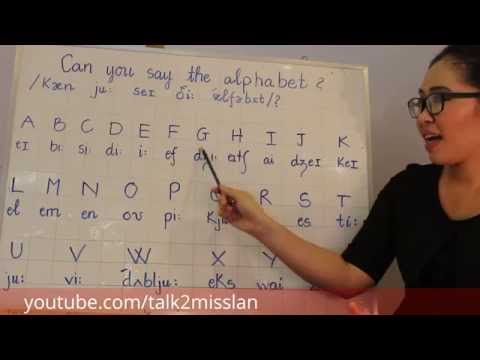 Can you say the alphabet?
/Kæn ju: seɪ ði: ˈælfəbɛt/?
A B C D E F G H I J K
eɪ bi: si: di: i: ef dʒi: eɪtʃ ai dʒeɪ keɪ
L M N O P R S T
el em en oʊ pi: kju: es ti:
U V W X Y
ju: vi: ˈdʌblju: eks wai
youtube.com/talk2misslan